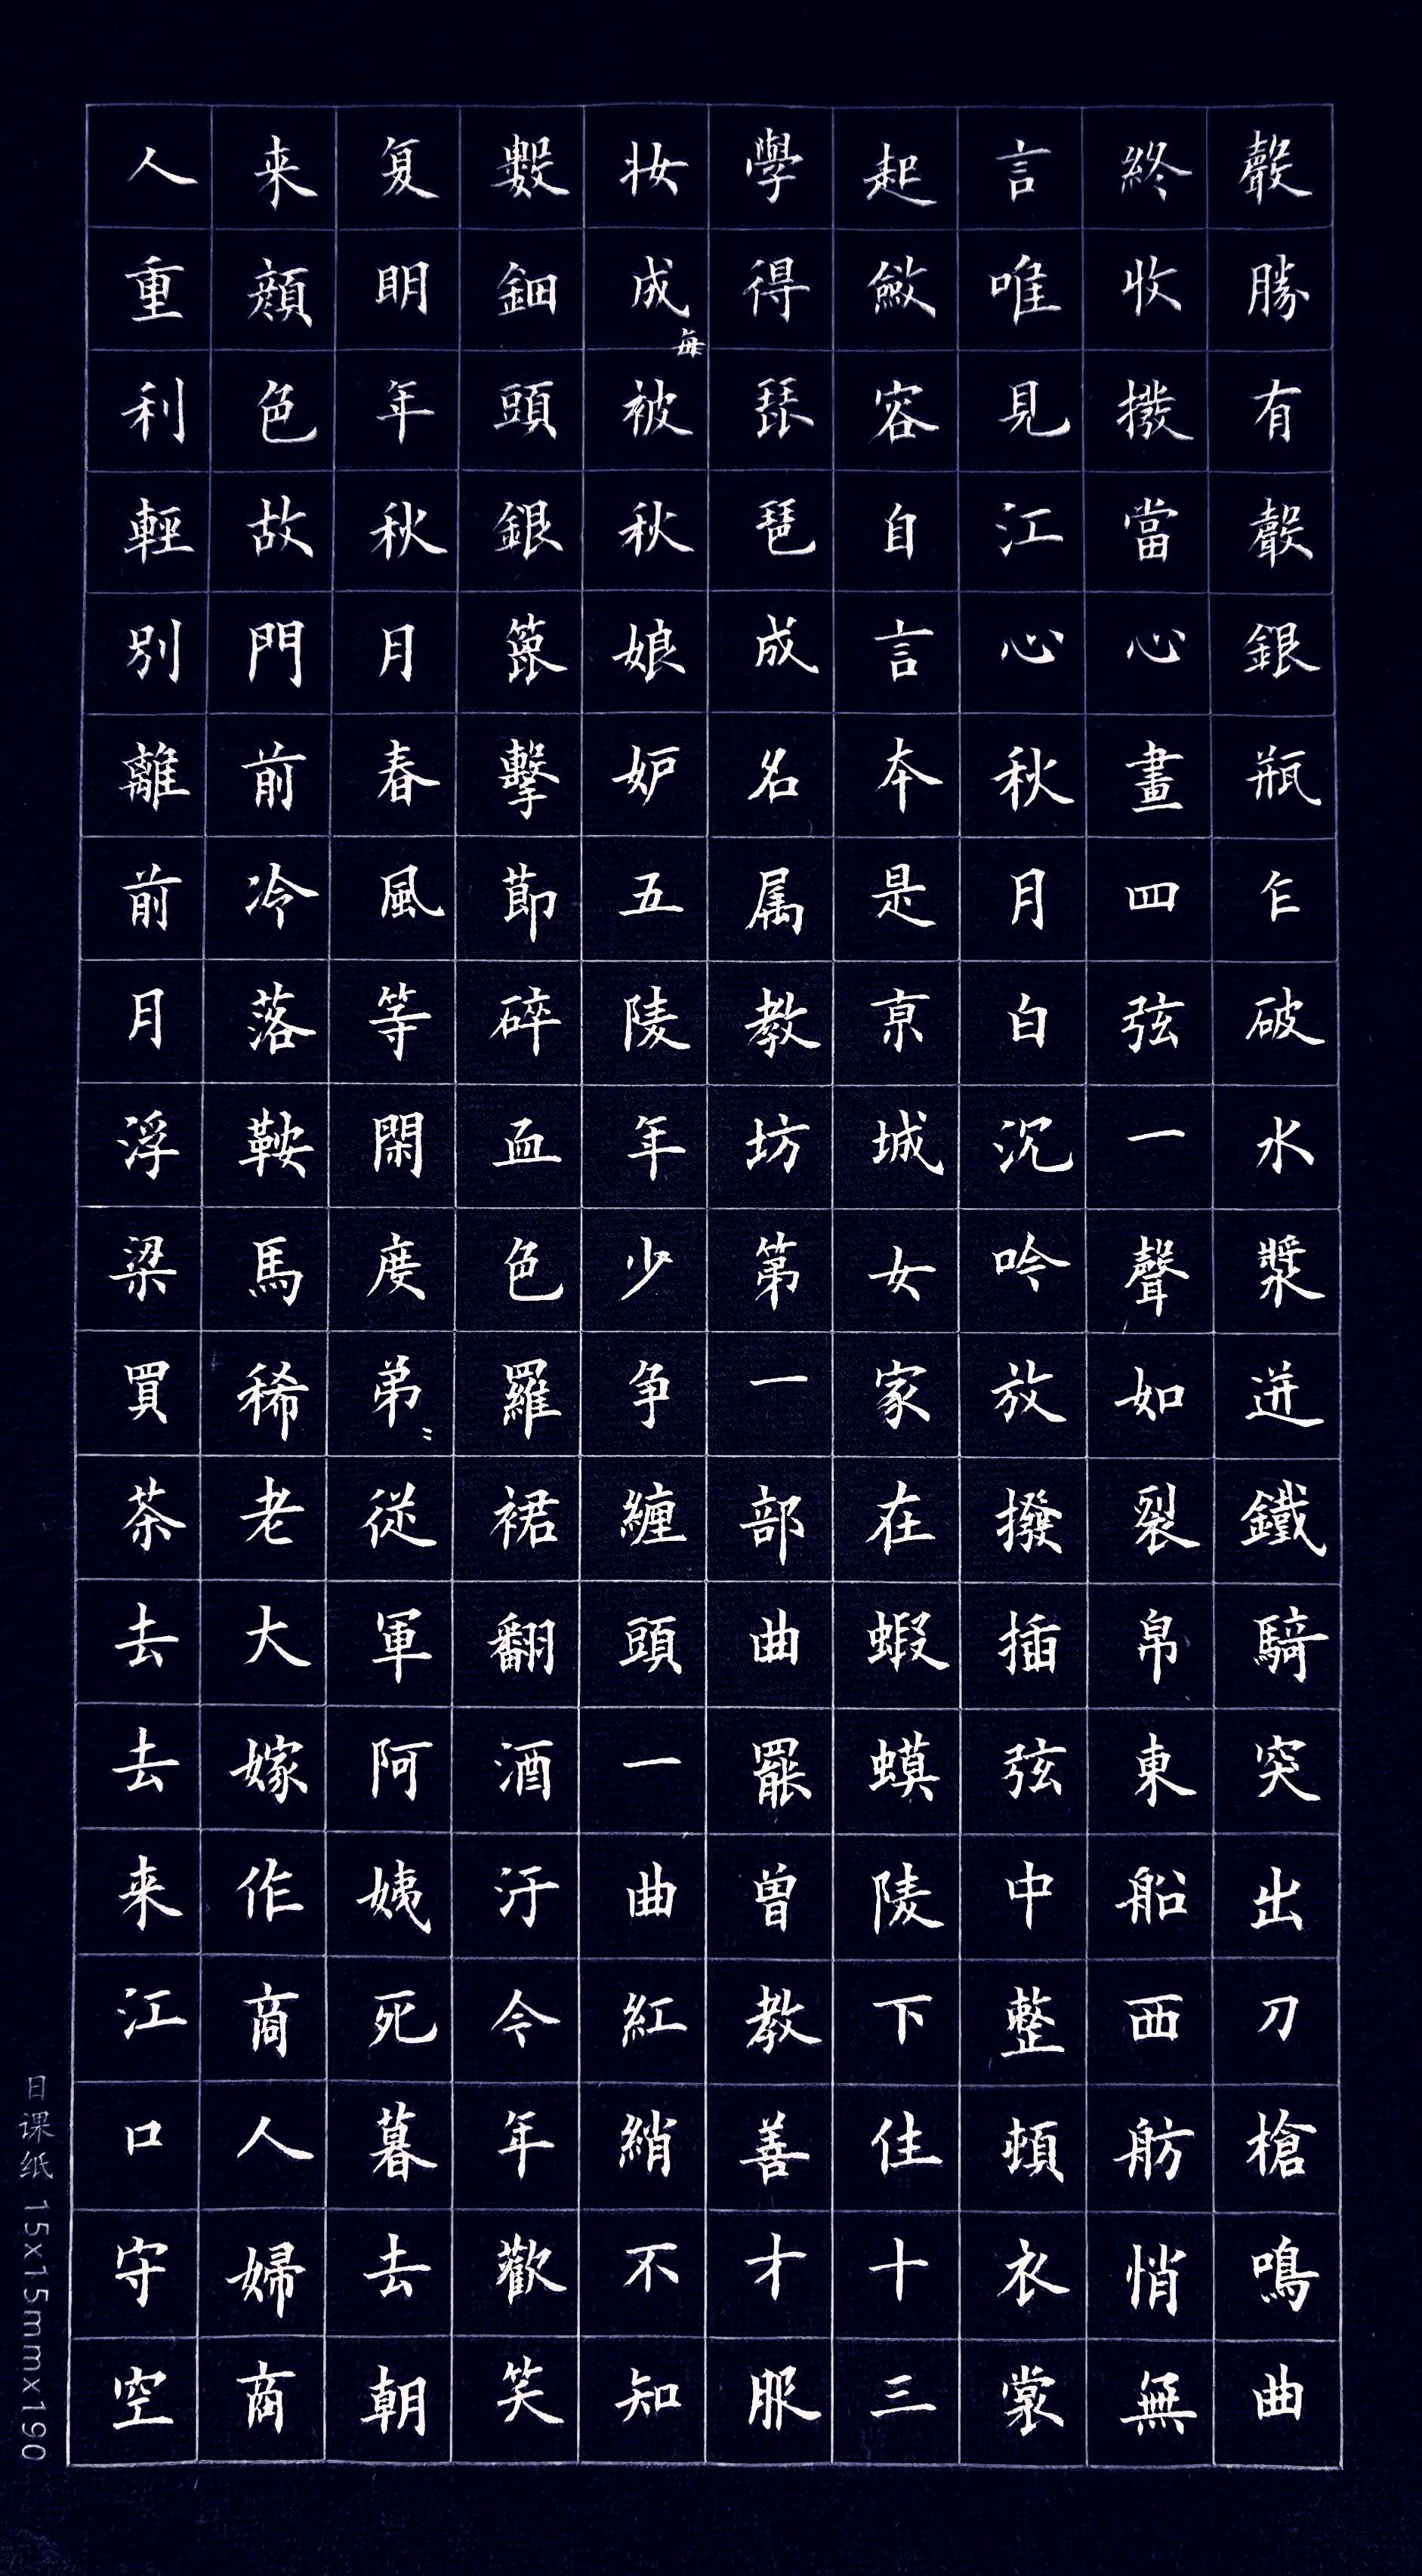 聲勝有聲銀瓶乍破水漿迸鐵騎突出刀槍鳴曲
終收撥當心畫四弦一聲如裂帛東船西舫悄無
言唯見江心秋月白沉吟放撥插弦中整頓衣裳
起斂容自言本是京城女家在蝦蟆陵下住十三
學得琵琶成名属教坊第一部曲罷曾教善才服
妝成每被秋娘妒五陵年少争纏頭一曲紅綃不知
數鈿頭銀篦擊節碎血色羅裙翻酒汙今年歡笑
复明年秋月春風等閑度弟〻從軍阿姨死暮去朝
来顏色故門前冷落鞍馬稀老大嫁作商人婦商
人重利輕別離前月浮梁買茶去去来江口守空
日课纸 15x15mmx190